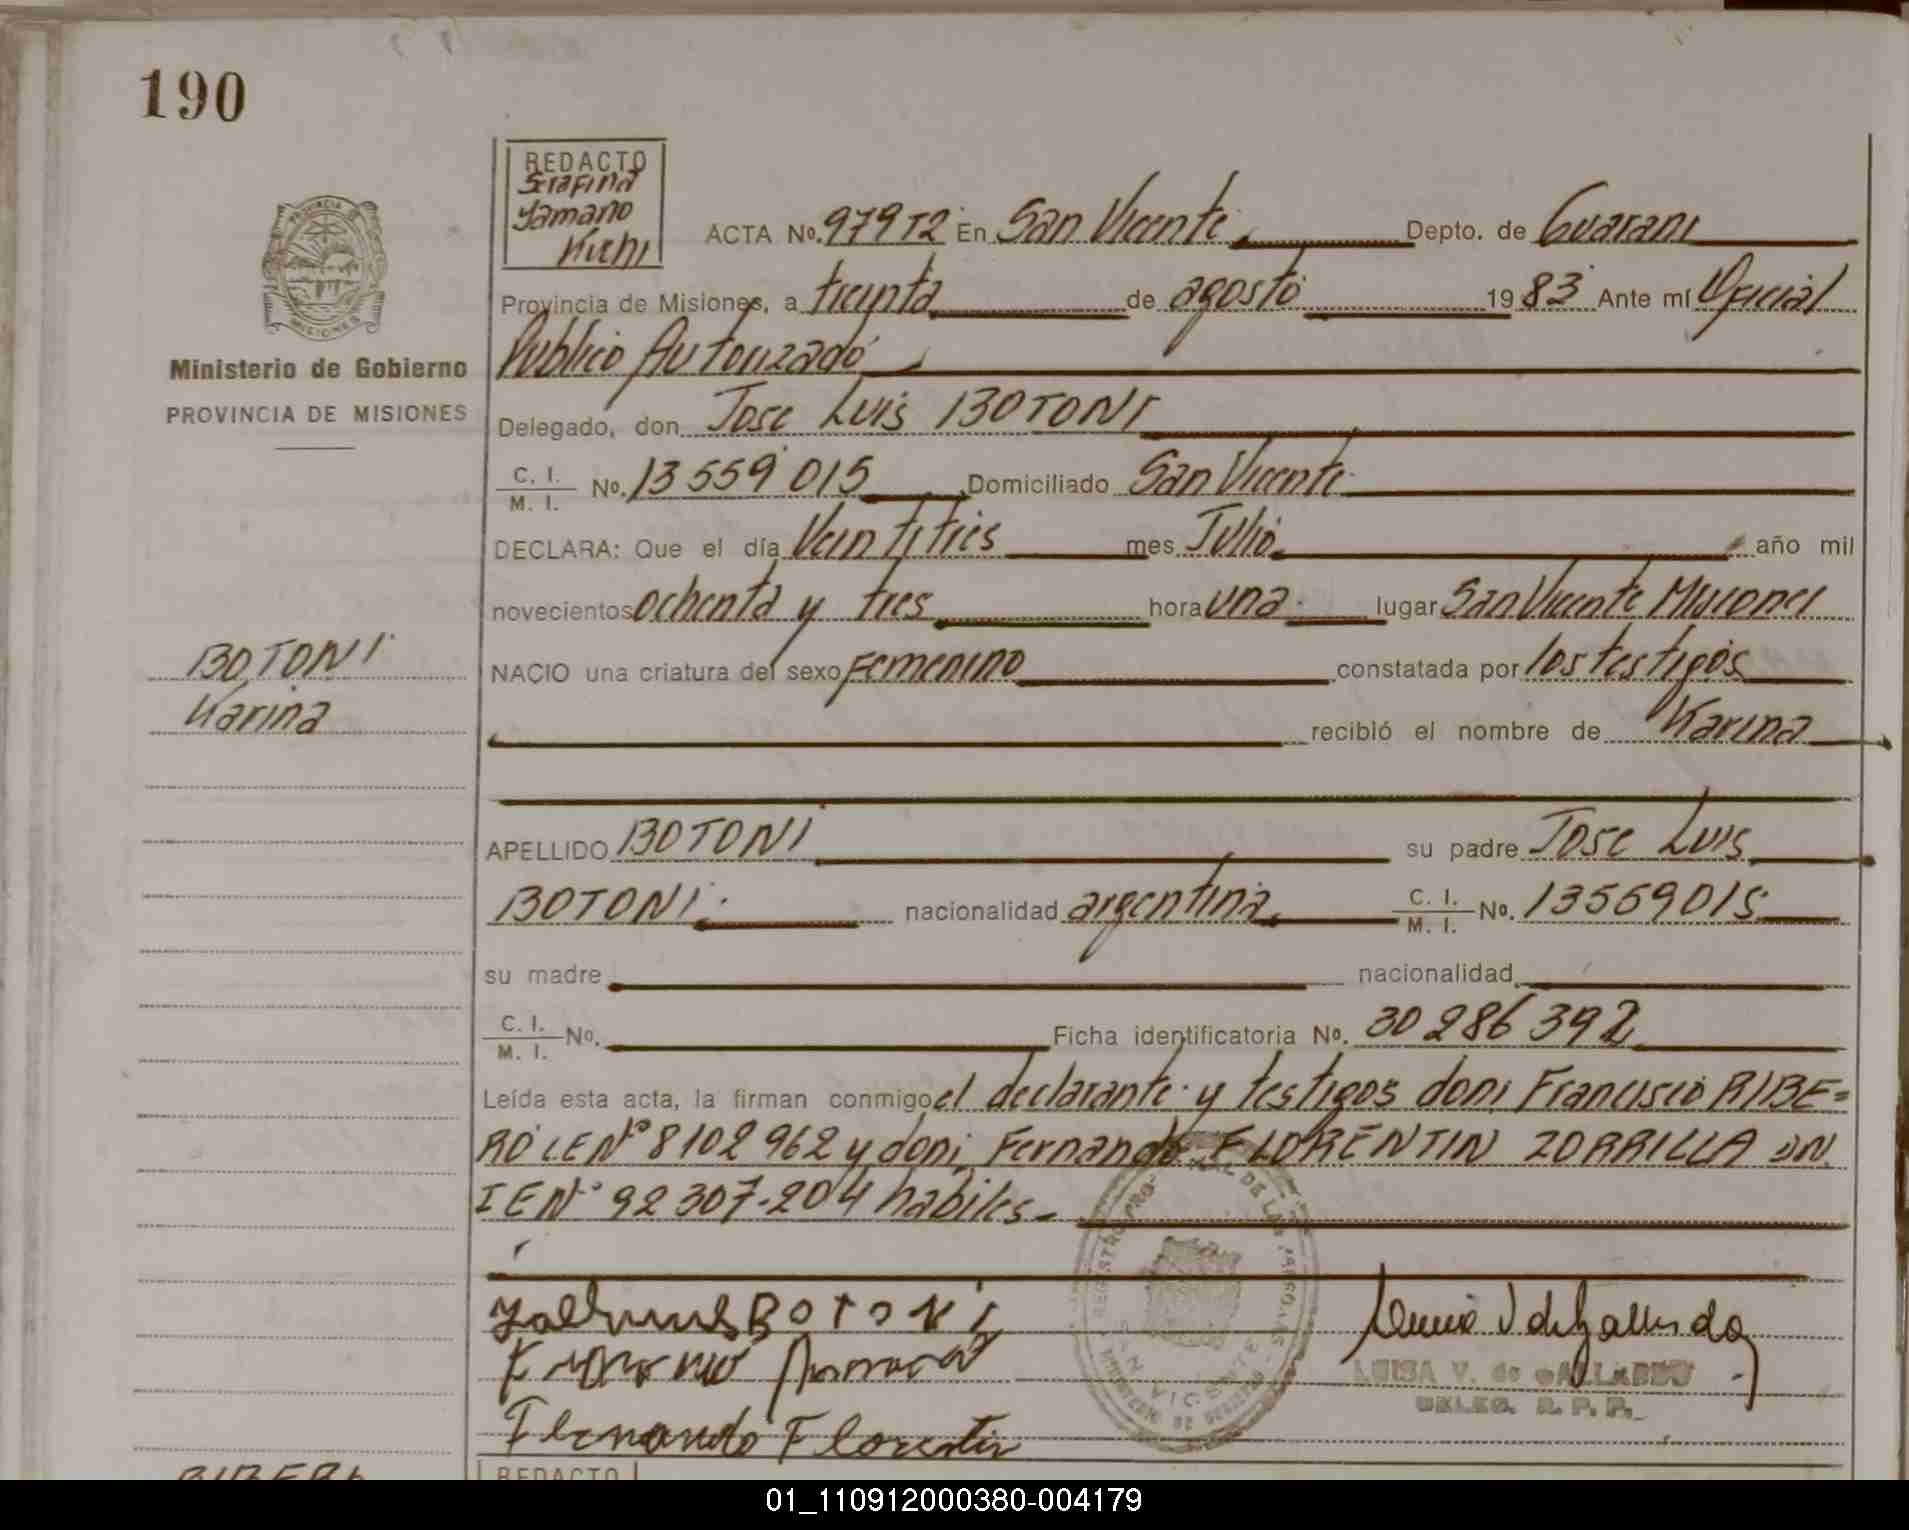 190
REDACTO
Serafina
Yamano
Kichi
ACTA No. 97972 En San Vicente Depto. de Guarani
Provincia de Misiones, a treinta de agosto 1983 Ante mí Oficial
Publico Autorizado
Ministerio de Gobierno
PROVINCIA DE MISIONES
Delegado, don Jose Luis BOTONI
C. I. / M. I. No. 13559015 Domiciliado San Vicente
DECLARA: Que el día Veintitres mes Julio año mil
novecientos ochenta y tres hora una lugar San Vicente Misiones
BOTONI
Karina
NACIO una criatura del sexo Femenino constatada por los testigos
recibió el nombre de Karina
APELLIDO BOTONI su padre Jose Luis
BOTONI nacionalidad argentina C. I. / M. I. No. 13569015
su madre nacionalidad
C. I. / M. I. No. Ficha identificatoria No. 30286392
Leída esta acta, la firman conmigo el declarante y testigos don: Francisco RIBE=
RO LE Nº 8102962 y don: Fernando FLORENTIN ZORRILLA DN
IE Nº 92307-204 habiles
BOTONI
Fernando Florentin
REGISTRO PROVINCIAL DE LAS PERSONAS
SAN VICENTE
MINISTERIO DE GOBIERNO
LUISA V. de GALLARDO
DELEG. R. P. P.
REDACTO
01_110912000380-004179